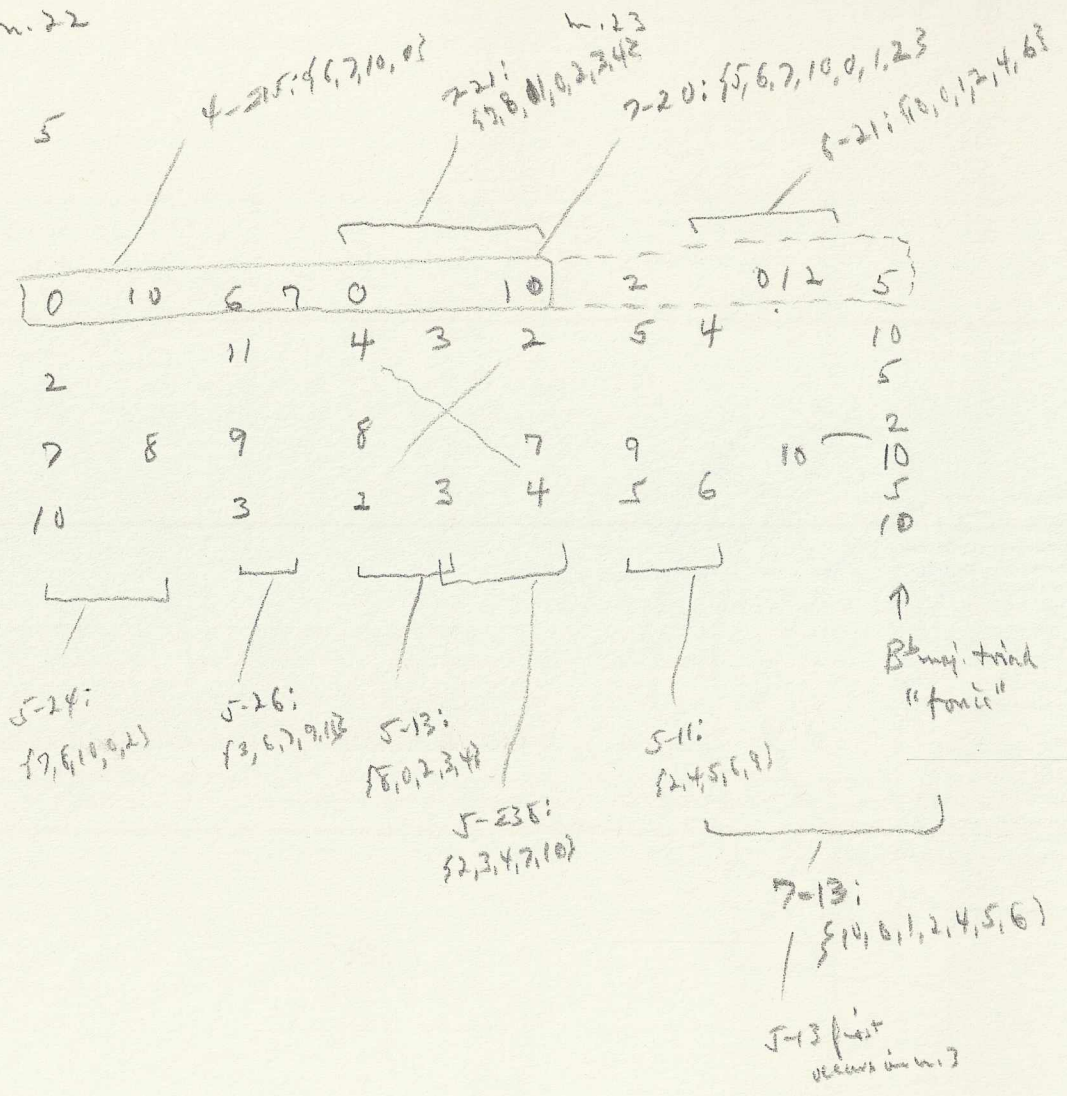 m.22
m.23
5
4-Z15: {6,7,10,0}
7-21:
{7,8,11,0,2,3,4}
7-20: {5,6,7,10,0,1,2}
6-21: {10,0,1,2,4,6}
0 10 6 7 0 10 2 0 1 2 5
11 4 3 2 5 4 10
2 5
2
7 8 9 8 7 9 10 10
10 3 2 3 4 5 6 5
10
↑
B♭ maj. triad
"tonic"
5-24:
{7,8,10,0,2}
5-26:
{3,6,7,9,11}
5-13:
{8,0,2,3,4}
5-Z38:
{2,3,4,7,10}
5-11:
{2,4,5,6,9}
7-13:
{10,0,1,2,4,5,6}
5-13 first
occurs in m.3